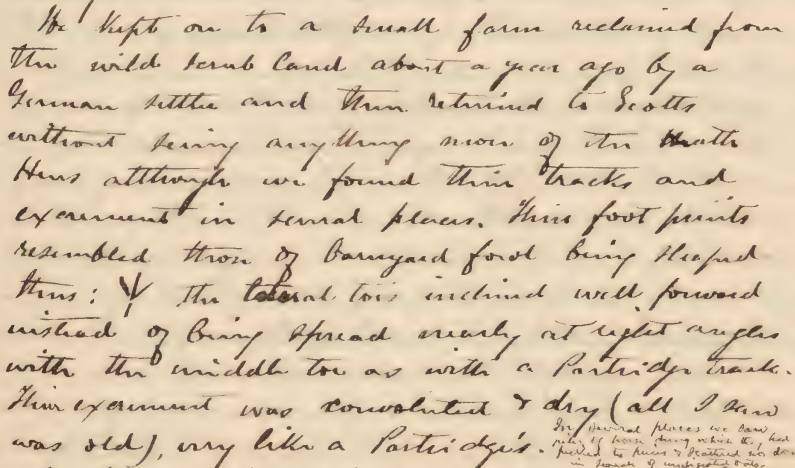 We kept on to a small farm reclaimed from
the wild scrub land about a year ago by a
German settler and then returned to Scotts
without seeing anything more of the Heath
Hens although we found their tracks and
excrement in several places. Their foot prints
resembled those of barnyard fowl being shaped
thus: the lateral toes inclined well forward
instead of being spread nearly at right angles
with the middle toe as with a Partridge track.
Their excrement was convoluted & dry (all I saw
was old), very like a Partridge's.
In several places we saw
piles of horse dung which they had
picked to pieces & scattered no doubt
in search of undigested oats.